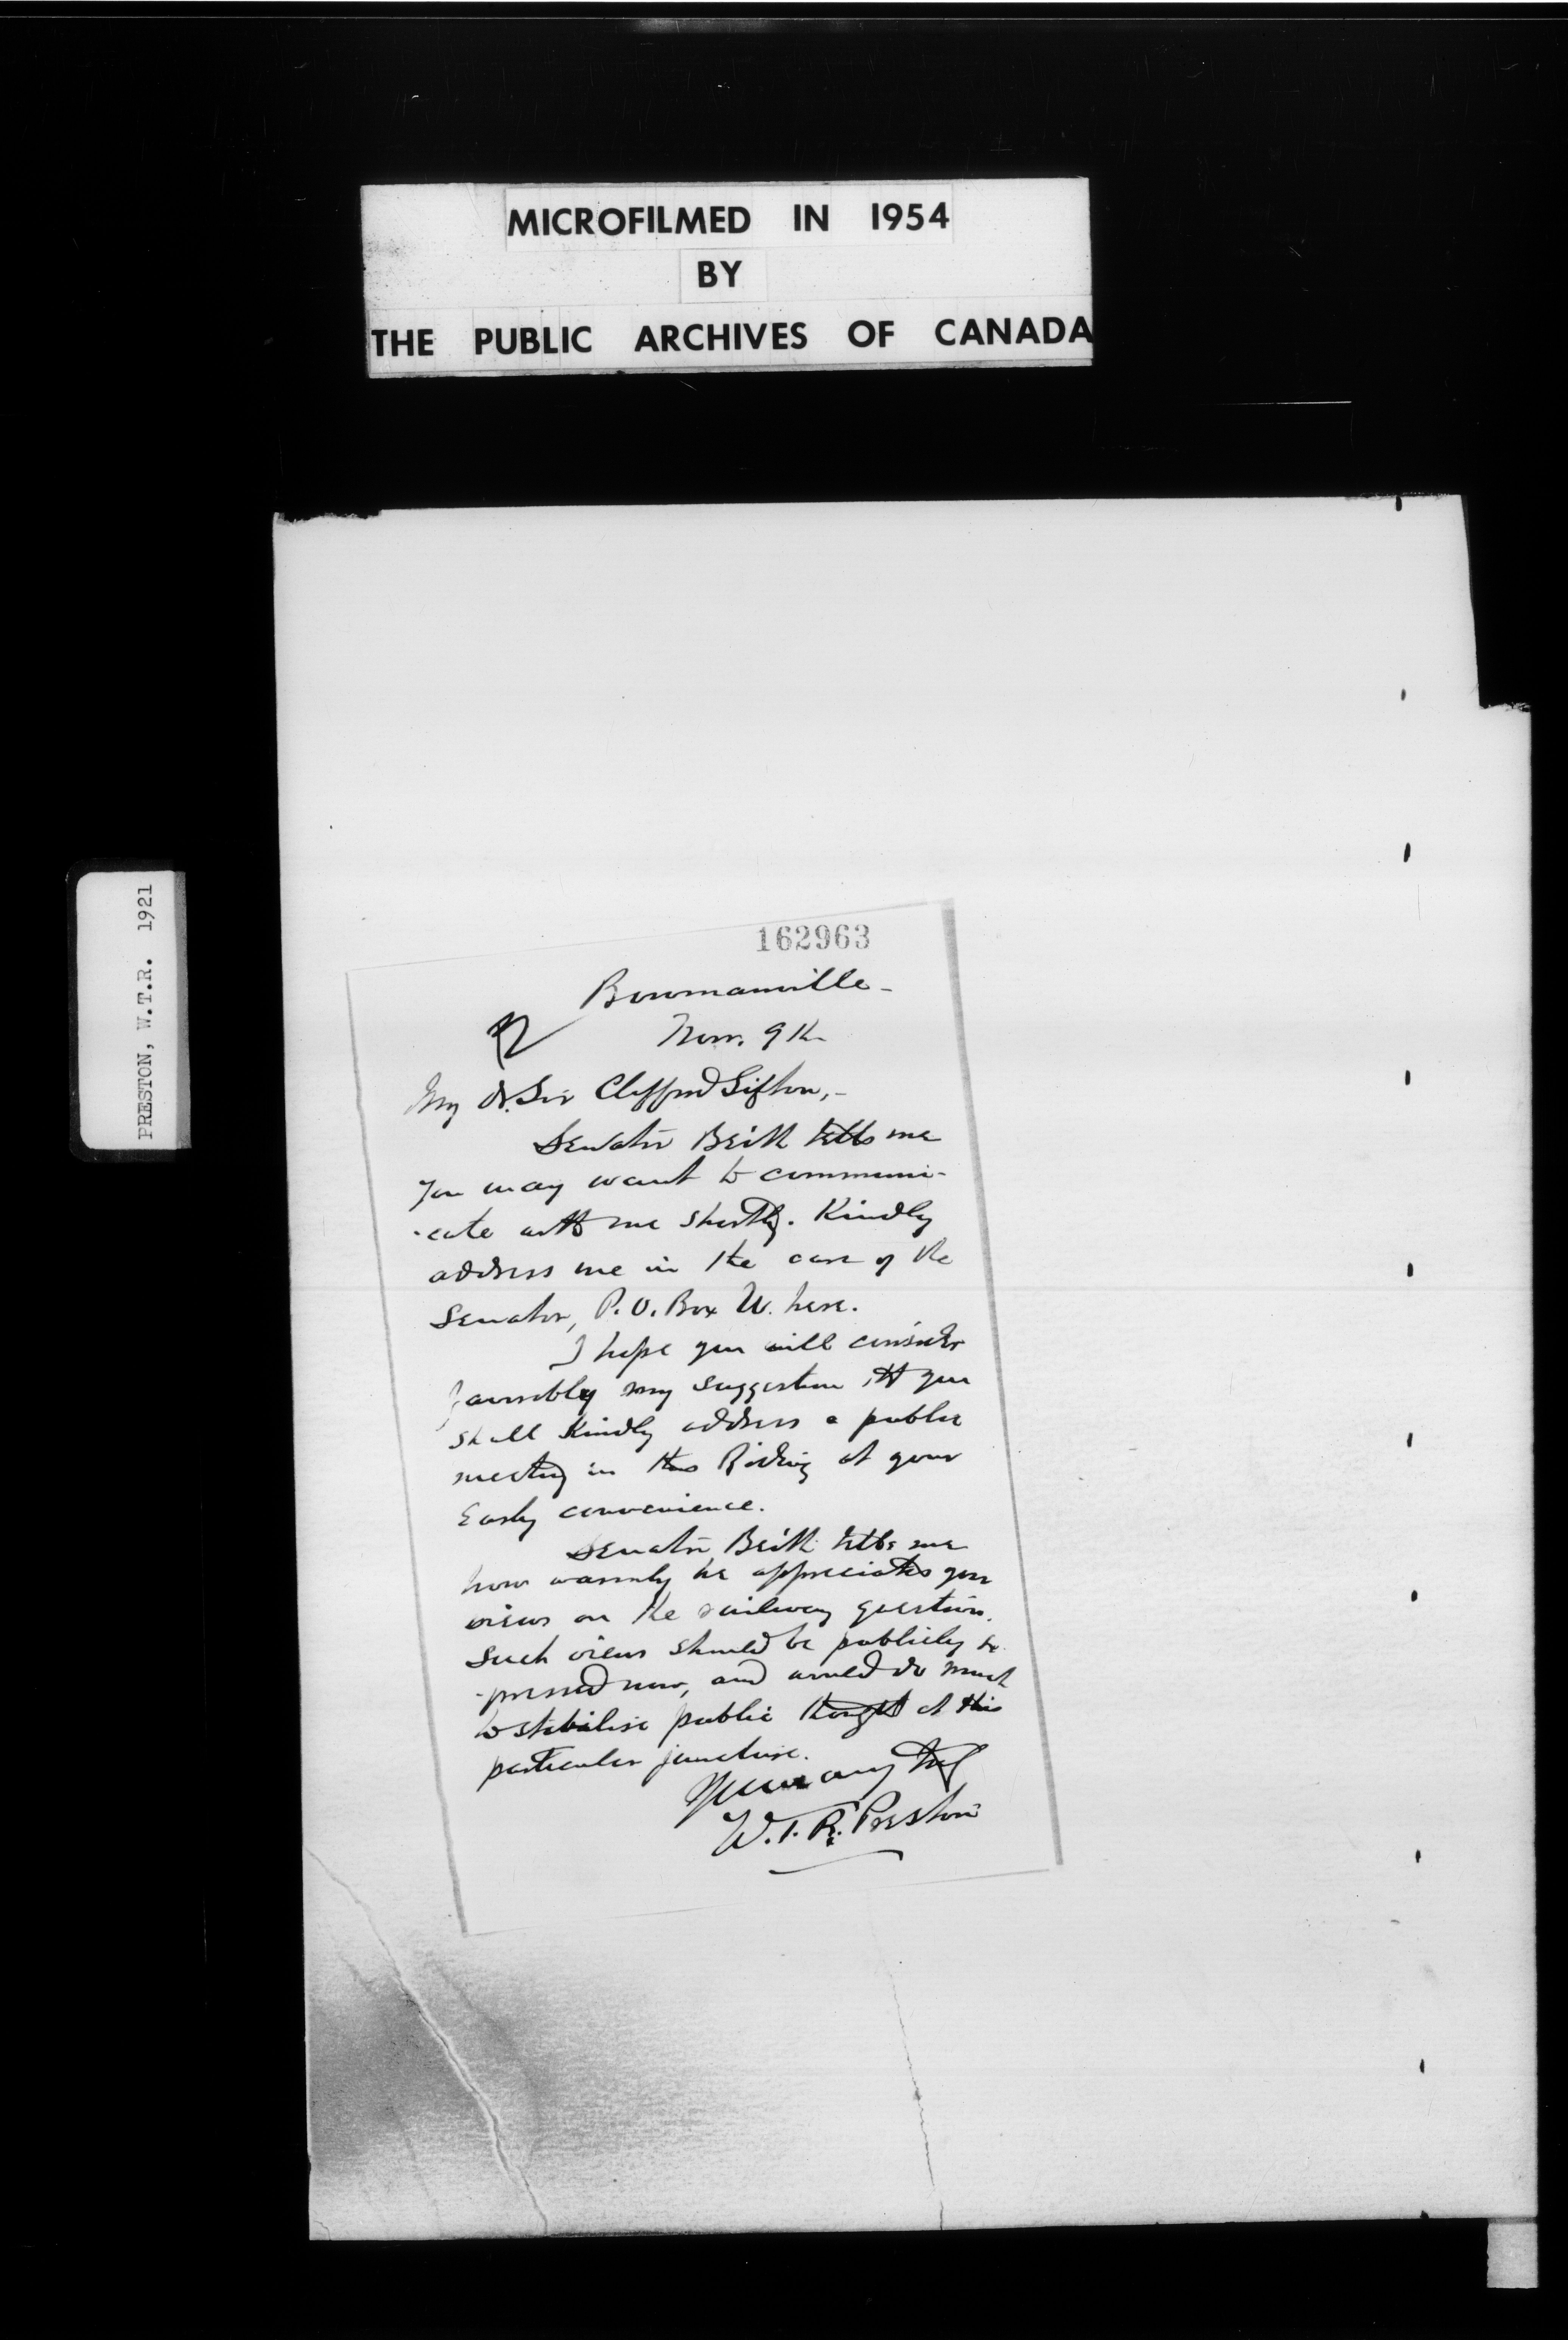 MICROFILMED IN 1954
BY
THE PUBLIC ARCHIVES OF CANADA
PRESTON, W.T.R. 1921
162963
Bowmanville -
Nov. 9th
My Dr. Sir Clifford Sifton, -
Senator Beith tells me
you may want to communi-
-cate with me shortly. Kindly
address me in the care of the
Senator, P.O. Box W. here.
I hope you will consider
favorably my suggestion tt you
shall kindly address a public
meeting in this Riding at your
early convenience.
Senator Beith tells me
how warmly he appreciates your
views on the railway question.
Such views should be publicly ex
-pressed now, and would do much
to stabilise public thought at this
particular juncture.
Yours very
W.T.R. Preston